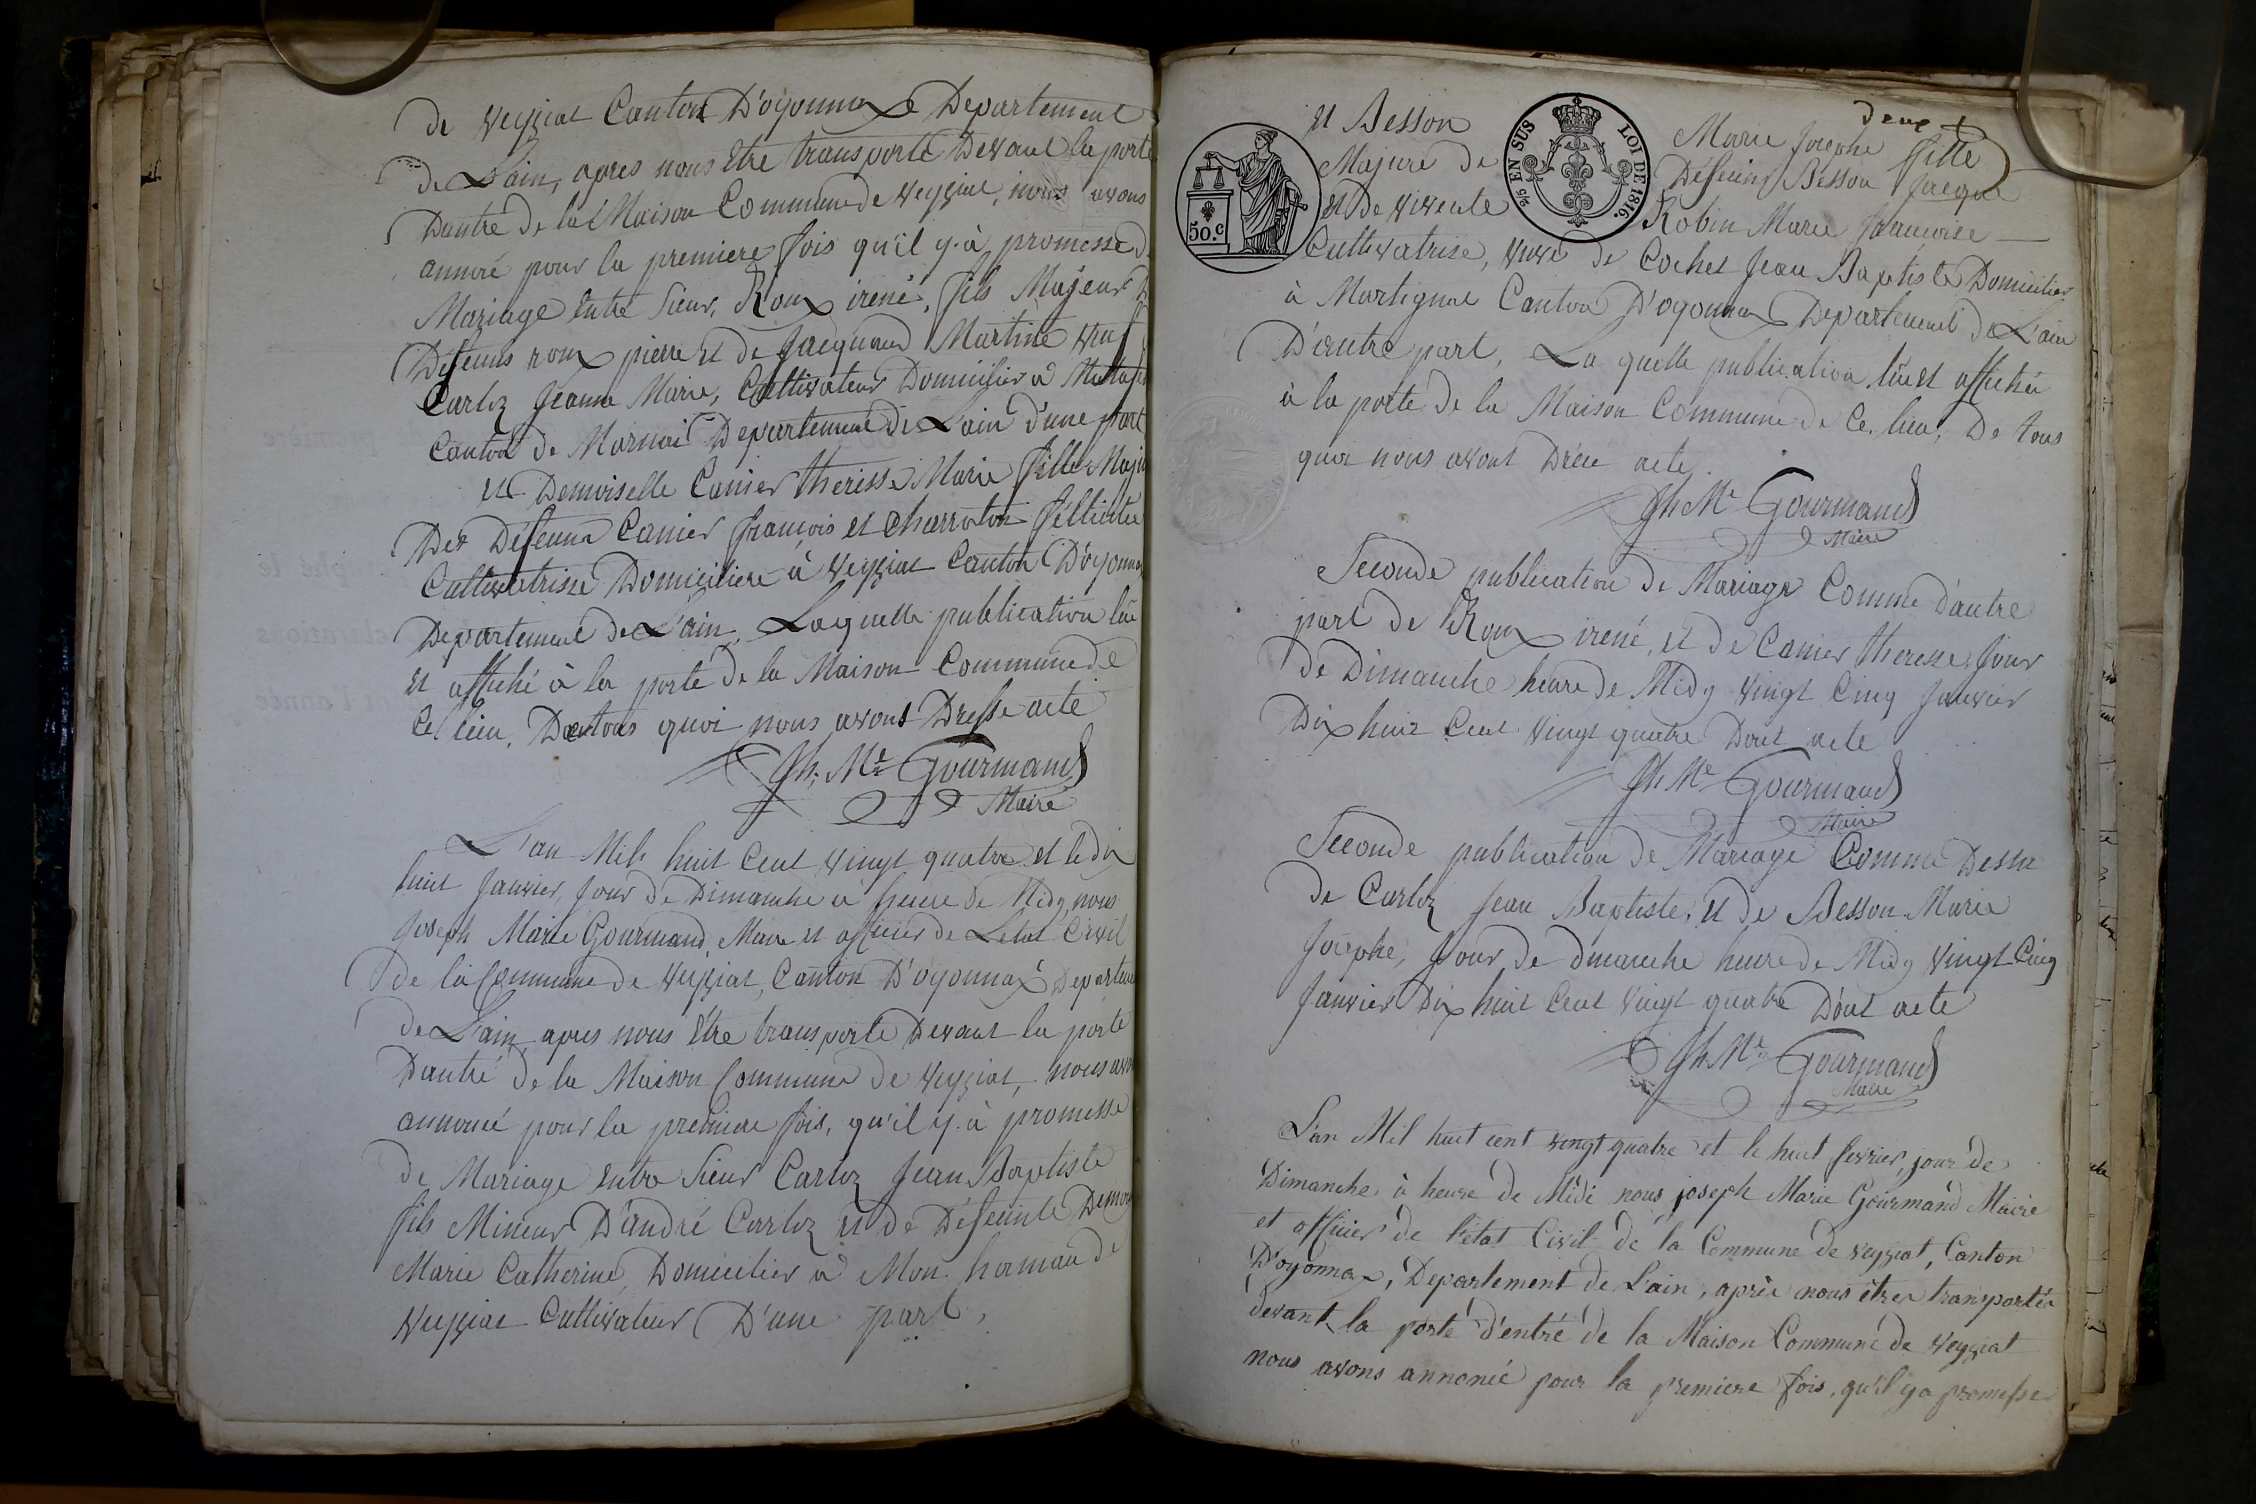 de veyziat Canton D'oyonnax Departement
de L'ain, apres nous être transporté Devant la porte
Dantré de la Maison Commune de veyziat, nous avons
annoncé pour la premiere fois qu'il y à promesse
Mariage entre Sieur, Roux irené, fils Majeur
Défeuns roux pierre et de Jacquand Martine
Carloz Jeanne Marie, Cultivateur Domicilier à
Canton de Departement de L'ain d'une part
et Demoiselle Canier theresse Marie fille
Des Défeunn Canier françois et Charroton féllicitée
Cultivatrisse Domiciliere à veyziat Canton D'oyonnax
Departement de L'ain, Laquelle publication lüe
et affiché à la porte de la Maison Commune de
Ce lieu, De tous quoi nous avons Dressé acte
Jh. Me Gourmand
Maire
L'an Mils huit Cent vingt quatre et le dix
huit Janvier, Jour de Dimanche à heure de Midy nous
Joseph Marie Gourmand Maire et officier de Letat Civil
de la Commune de veyziat, Canton D'oyonnax
de L'ain apres nous être transporté Devant la porte
Dantré de la Maison Commune de veyziat, nous
annoncé pour la premiere fois, qu'il y à promesse
de Mariage entre Sieur Carloz Jean Baptiste
fils Mineur D'andré Carloz et de Défeunte
Marie Catherine Domicilier à Mon
veyziat Cultivateur D'une part,
50.c
EN SUS
LOI DE 1816.
et Besson Marie Josephe fille
Majure de Défeuns Besson Jacque
et De vivente Robin Marie francoise
Cultivatrise, veuve de Cochet Jean Baptiste Domicilier
à Martignat Canton D'oyonnax Departement de L'ain
D'autre part, La quelle publication lüe et affichée
à la porte de la Maison Commune de Ce lieu, De tous
quoi nous avont acte.
Jh Me Gourmand
Maire
Seconde publication de Mariage Comme d'autre
part de Roux irené, et de Canier theresse, Jour
de Dimanche heure de Midy vingt Cinq Janvier
Dix huit Cent vingt quatre Dont acte
Jh Me Gourmand
Maire
Seconde publication de Mariage Comme
de Carloz Jean Baptiste, et de Besson Marie
Josephe, Jour de dmanche heure de Midy vingt Cinq
Janvier Dix huit Cent vingt quatre Dont acte
Jh Me Gourmand
Maire
L'an Mil huit cent vingt quatre et le huit fevrier, jour de
Dimanche à heure de Midi nous joseph Marie Gourmand Maire
et officier de l'état Civil de la Commune de veyziat, Canton
D'oyonnax, Departement de L'ain, après nous être transporté
devant la porte d'entré de la Maison Commune de veyziat
nous avons annoncé pour la premiere fois, qu'il y a promesse